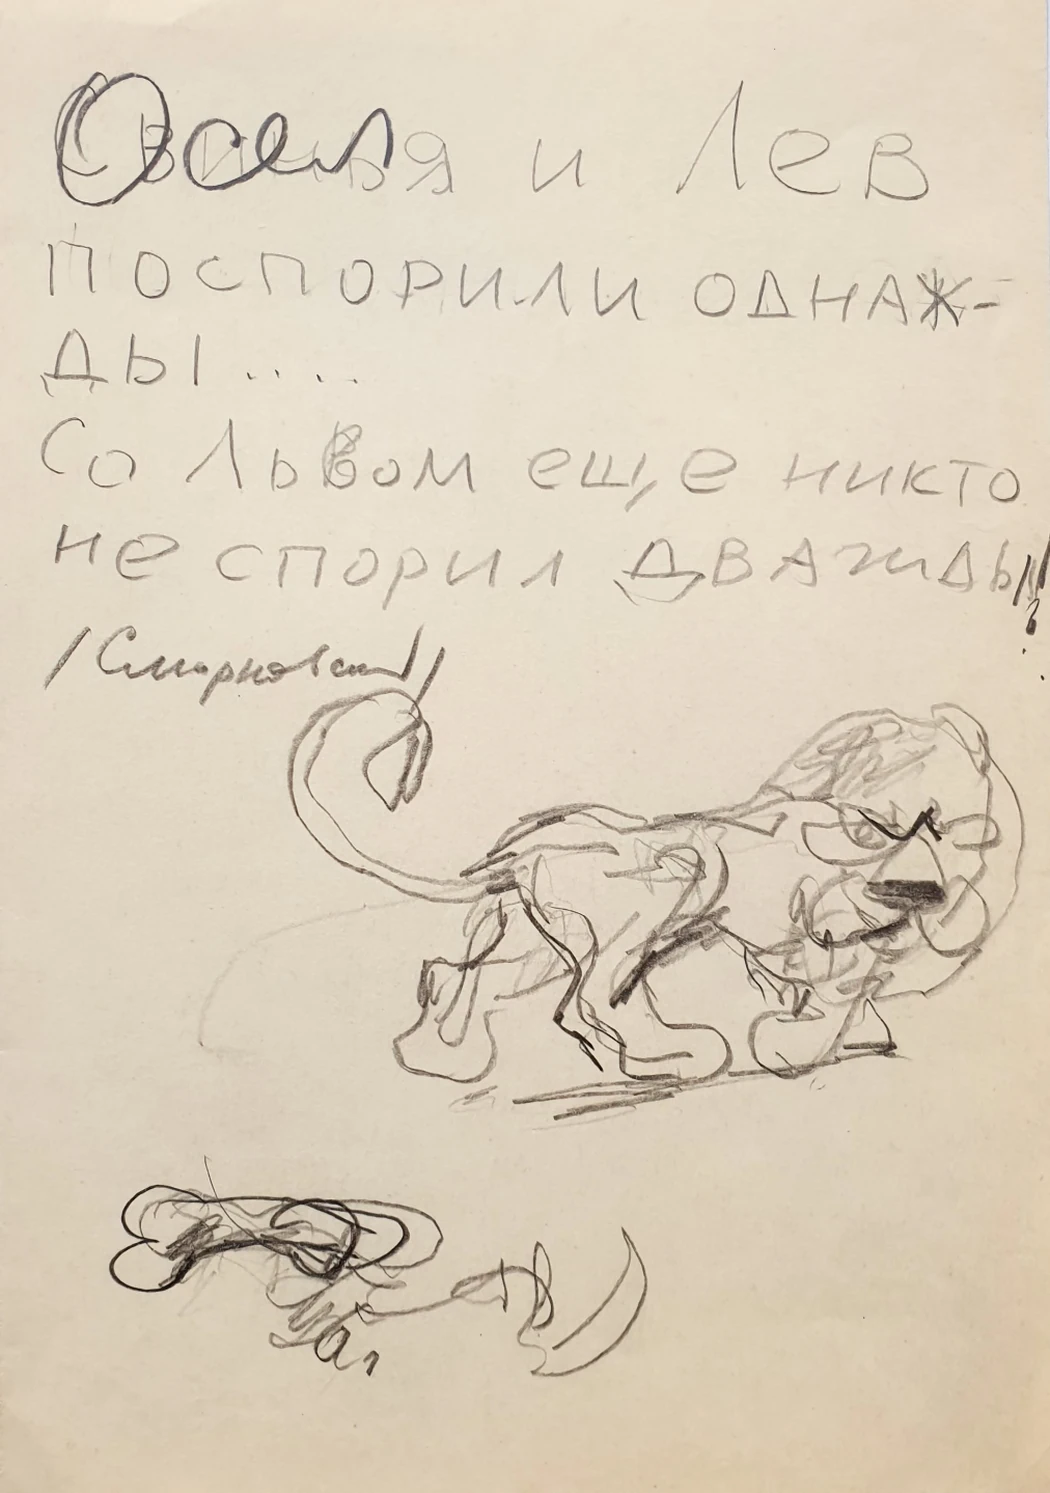 Осел и Лев
поспорили однаж-
ды....
Со Львом еще никто
не спорил дважды!
/Смирновский/